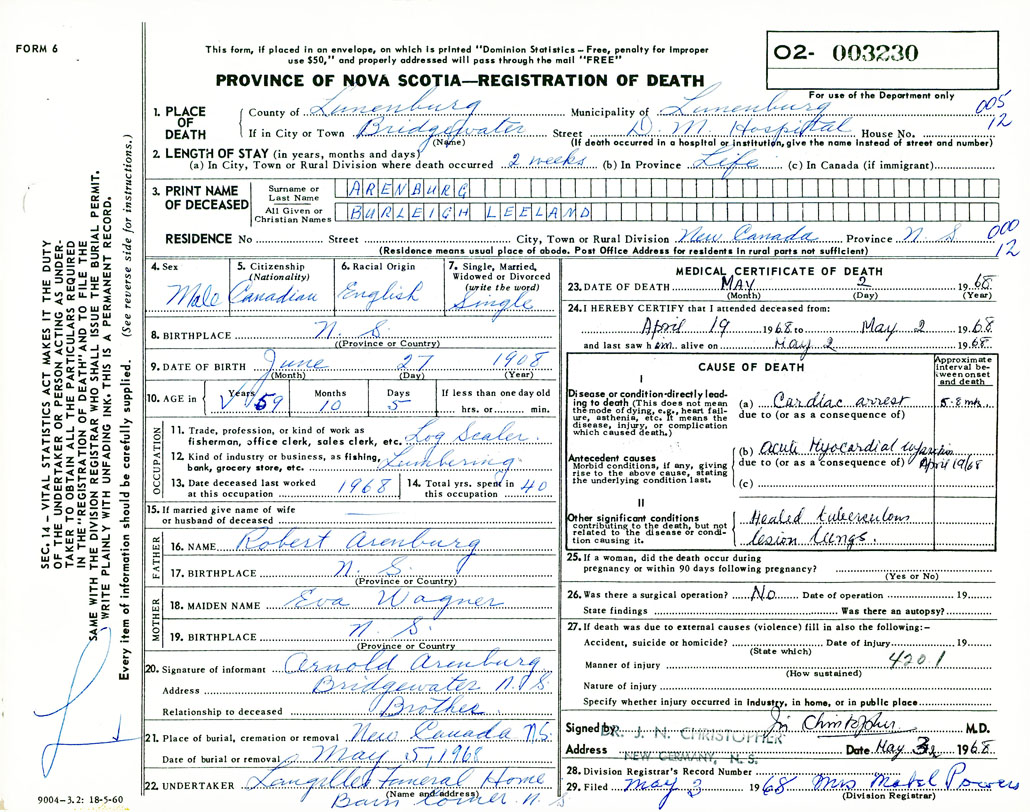 FORM 6
This form, if placed in an envelope, on which is printed "Dominion Statistics – Free, penalty for improper
use $50," and properly addressed will pass through the mail "FREE"
PROVINCE OF NOVA SCOTIA—REGISTRATION OF DEATH
02- 003230
For use of the Department only
005
12
1. PLACE OF DEATH
County of Lunenburg Municipality of Lunenburg
If in City or Town Bridgewater Street D. M. Hospital House No.
(Name) (If death occurred in a hospital or institution, give name instead of street and number)
2. LENGTH OF STAY (in years, months and days)
(a) In City, Town or Rural Division where death occurred 2 weeks (b) In Province Life (c) In Canada (if immigrant)
3. PRINT NAME OF DECEASED
Surname or Last Name ARENBURG
All Given or Christian Names BURLEIGH LEELAND
RESIDENCE No Street City, Town or Rural Division New Canada Province N. S.
000
12
(Residence means usual place of abode. Post Office Address for residents in rural parts not sufficient)
4. Sex Male
5. Citizenship (Nationality) Canadian
6. Racial Origin English
7. Single, Married, Widowed or Divorced (write the word) Single
8. BIRTHPLACE N. S.
(Province or Country)
9. DATE OF BIRTH June 27 1908
(Month) (Day) (Year)
10. AGE in Years 59 Months 10 Days 5 If less than one day old hrs. or min.
OCCUPATION
11. Trade, profession, or kind of work as fisherman, office clerk, sales clerk, etc. Log Scaler
12. Kind of industry or business, as fishing, bank, grocery store, etc. Lumbering
13. Date deceased last worked at this occupation 1968
14. Total yrs. spent in this occupation 40
15. If married give name of wife or husband of deceased
FATHER
16. NAME Robert Arenburg
17. BIRTHPLACE N. S.
(Province or Country)
MOTHER
18. MAIDEN NAME Eva Wagner
19. BIRTHPLACE N. S.
(Province or Country)
20. Signature of informant Arnold Arenburg
Address Bridgewater N. S.
Relationship to deceased Brother
21. Place of burial, cremation or removal New Canada N.S.
Date of burial or removal May 5, 1968
22. UNDERTAKER Langilles Funeral Home
(Name and address)
N. S
MEDICAL CERTIFICATE OF DEATH
23. DATE OF DEATH MAY 2 1968
(Month) (Day) (Year)
24. I HEREBY CERTIFY that I attended deceased from:
April 19 1968 to May 2 1968
and last saw him alive on May 2 1968
CAUSE OF DEATH
Approximate interval between onset and death
I
Disease or condition-directly leading to death (This does not mean the mode of dying, e.g., heart failure, asthenia, etc. It means the disease, injury, or complication which caused death.)
(a) Cardiac arrest
due to (or as a consequence of)
Antecedent causes
Morbid conditions, if any, giving rise to the above cause, stating the underlying condition last.
(b) Acute Myocardial
due to (or as a consequence of) April 19/68
(c)
II
Other significant conditions contributing to the death, but not related to the disease or condition causing it.
Healed tuberculous
lesion lungs.
25. If a woman, did the death occur during pregnancy or within 90 days following pregnancy?
(Yes or No)
26. Was there a surgical operation? No Date of operation 19
State findings Was there an autopsy?
27. If death was due to external causes (violence) fill in also the following:–
Accident, suicide or homicide? Date of injury 19
(State which)
Manner of injury 4201
(How sustained)
Nature of injury
Specify whether injury occurred in Industry, in home, or in public place
Signed by Christopher M.D.
DR. J. N. CHRISTOPHER
Address NEW GERMANY, N. S. Date May 1968
28. Division Registrar's Record Number
29. Filed May 3 1968 Mrs Mabel Powers
(Division Registrar)
SEC. 14 – VITAL STATISTICS ACT MAKES IT THE DUTY
OF THE UNDERTAKER OR PERSON ACTING AS UNDER-
TAKER TO OBTAIN ALL THE PARTICULARS REQUIRED
IN THE "REGISTRATION OF DEATH" AND TO FILE THE
SAME WITH THE DIVISION REGISTRAR WHO SHALL ISSUE THE BURIAL PERMIT.
WRITE PLAINLY WITH UNFADING INK. THIS IS A PERMANENT RECORD.
Every item of information should be carefully supplied. (See reverse side for instructions.)
9004-3.2: 18-5-60